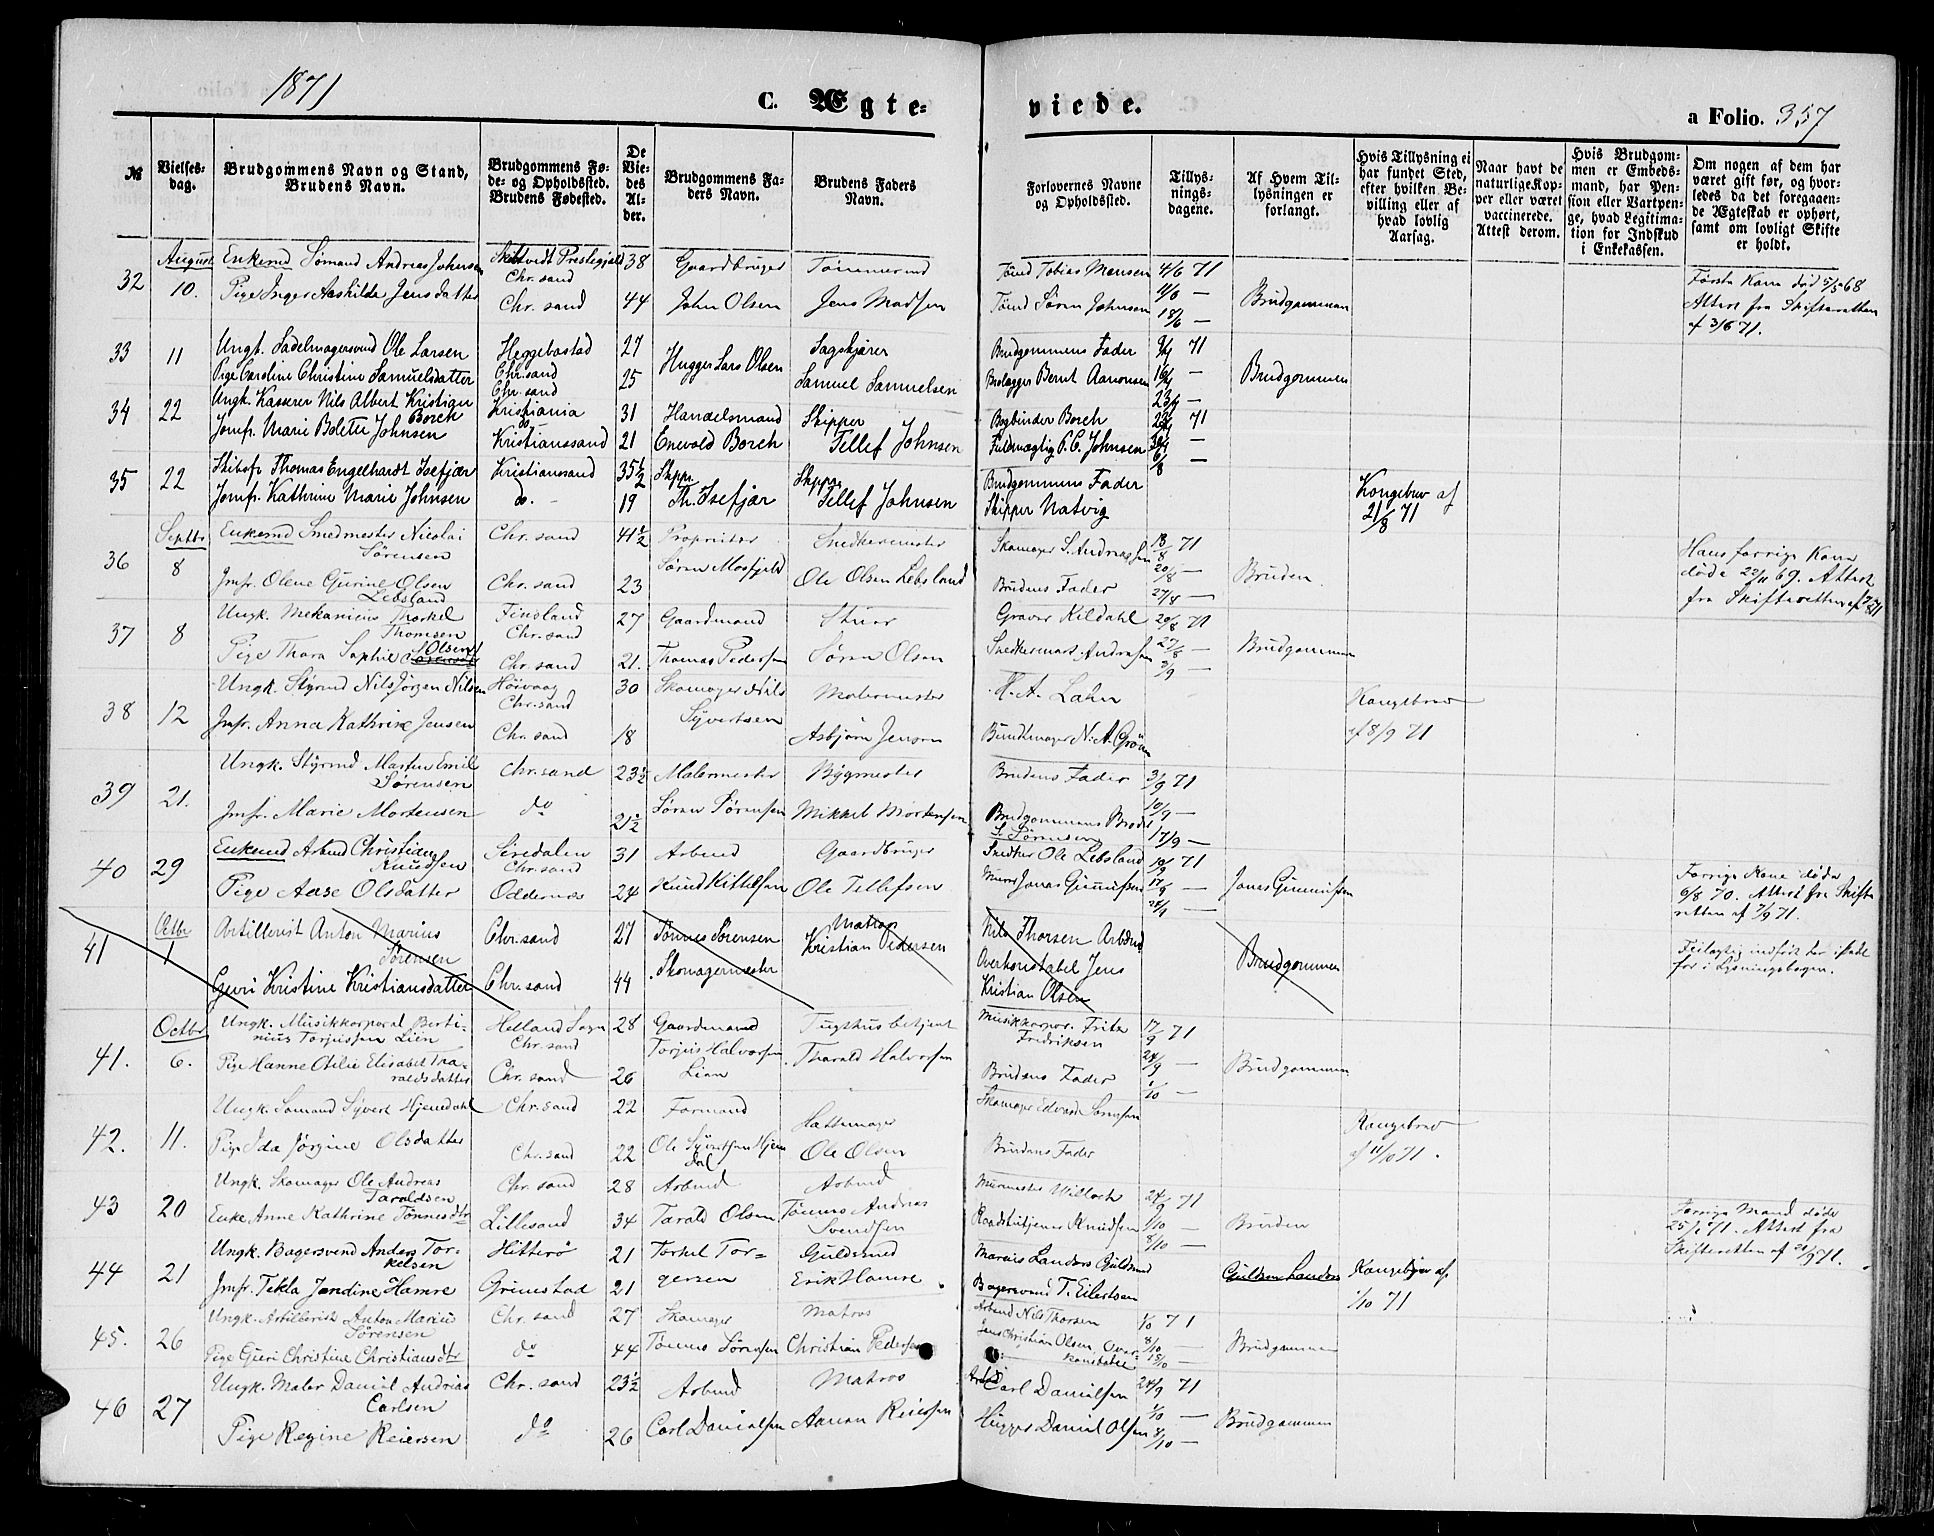 1871
C. Ægte-
viede.
a Folio. 357
№
Vielses-
dag.
Brudgommens Navn og Stand,
Brudens Navn.
Brudgommens Fø-
de- og Opholdssted.
Brudens Fødested.
De
Vie-
des
Al-
der.
Brudgommens Fa-
ders Navn.
Brudens Faders
Navn.
Forlovernes Navne
og Opholdssted.
Tillys-
nings-
dagene.
Af Hvem Til-
lysningen er
forlangt.
Hvis Tillysning ei
har fundet Sted,
efter hvilken Be-
villing eller af
hvad lovlig
Aarsag.
Naar havt de
naturlige Kop-
per eller været
vaccinerede.
Attest derom.
Hvis Brudgom-
men er Embeds-
mand, har Pen-
sion eller Vartpen-
ge, hvad Legitima-
tion for Indskud
i Enkekassen.
Om nogen af dem har
været gift før, og hvor-
ledes da det foregaaen-
de Ægteskab er ophørt,
samt om lovligt Skifte
er holdt.
32 August 10. Enkemd Sømand Andreas Johnsen Prestegjeld Chr.sand 38 Gaardbruger Tømmermd Tømd Tobias Monsen 4/6 71
Pige Inger Aashilda Jensdatter Chr.sand 44 John Olsen Jens Madsen Tømd Søren Johnsen 11/6 — 18/6 — Brudgommen
Første Kone død 5/5 68
Attest fra Skifteretten
af 3/6 71.
33 11 Ungk. Sadelmagersvend Ole Larsen Heggebostad Chr.sand 27 Hugger Lars Olsen Sagskjærer Brudgommens Fader 9/7 71
Pige Caroline Christine Samuelsdatter Chr.sand 25 Samuel Samuelsen Brolægger Bernt Aanonsen 16/7 — 23/7 — Brudgommen
34 22 Ungk. Kasserer Nils Albert Kristian Borch Kristiania do 31 Handelsmand Skipper Bogbinder Borch 23/7 71
Jomfr. Marie Bolette Johnsen Kristianssand 21 Enevold Borch Tellef Johnsen Fuldmægtig P. C. Johnsen 30/7 — 6/8 —
35 22 Skibsfr Thomas Engelhardt Isefjær Kristianssand 35½ Skppr Skppr Brudgommens Fader
Jomfr. Kathrine Marie Johnsen do. - 19 Th. Isefjær Tellef Johnsen Skipper Natvig
Kongebrev af
21/8 71
36 Septbr 8 Enkemd Smedmester Nicolai Sørensen Chr.sand 41½ Proprietær Snedkermester Skomager S. Andreassen 13/8 71
Jmfr. Olene Gurine Olsen Lebsland Chr.sand 23 Søren Mosfjeld Ole Olsen Lebsland Brudens Fader 20/8 — 27/8 — Bruden.
Hans forrige Kone
døde 22/11 69. Attest
fra Skifteretten af
37 8 Ungk. Mekanicus Thorkel Thomsen Findland Chr.sand 27 Gaardmand Stuer Graver Kildahl 20/8 71
Pige Thora Sophie Olsen Chr.sand 21. Thomas Pedersen Søren Olsen Snedkermest. Andresen 27/8 — 3/9 Brudgommen
38 12 Ungk. Styrmd Nils Jørgen Nilsen Høivaag Chr.sand 30 Skomager Nils Sÿvertsen Malermester H. A. Lahn
Jmfr. Anna Kathrine Jensen Chr.sand 18 Asbjørn Jensen Bundtmager N. A. Grøn
Kongebrev
af 8/9 71
39 21. Ungk. Styrmd Martin Emil Sørensen Chr.sand 23½ Malermester Bygmester Brudens Fader 3/9 71
Jmfr. Marie Mortensen do 21½ Søren Sørensen Mikkel Mortensen Brudgommens Broder S. Sørensen 10/9 — 17/9 —
40 29 Enkemd Arbmd Christian Knudsen Siredalen Chr.sand 31 Arbmd Gaardbruger Snedker Ole Lebsland 10/9 71
Pige Aase Olsdatter Oddernes 24 Knud Kittelsen Ole Tellefsen Murer Jonas Gunnufsen 17/9 — 24/9 — Jonas Gunnufsen
Forrige Kone døde
6/8 70. Attest fra Skifte
retten af 7/9 71.
41 Octbr 1 Artillerist Anton Marius Sørensen Chr.sand 27 Tønnes Sørensen Matros Kristian Pedersen Nils Thorsen Arbmd
Guri Kristine Kristiansdatter Chr.sand 44 Skomagermester Overkonstabel Jens Kristian Olsen Brudgommen
Feilagtig indført her istede
for i Lysningsbogen.
41. Octbr 6. Ungk. Musikkorporal Berti-
nius Torjussen Lien Helland Sogn Chr.sand 28 Gaardmand Tugthusbetjent Musikkorpor. Fritz Fredriksen 17/9 71
Pige Hanne Otilie Elisabet Tha-
raldsdatter Chr.sand 26 Torjus Halvorsen Lien Tharald Halvorsen Brudens Fader 24/9 — 1/10 — Brudgommen
42. 11. Ungk. Sømand Sÿvert Hjemdahl Chr.sand 22 Formand Hattemager Skomager Edvard
Pige Ida Jørgine Olsdatter Chr.sand 22 Ole Sÿvertsen Hjem
dal Ole Olsen Brudens Fader
Kongebrev
af 11/10 71.
43 20 Ungk. Skomager Ole Andreas Taraldsen Chr.sand 28 Arbmd Arbmd Murmester Willoch 24/9 71
Enke Anne Kathrine Tønnesdtr Lillesand 34 Tarald Olsen Tønnes Andreas Svendsen Raadstutjener Knudsen 1/10 — 8/10 — Bruden
Forrige Mand døde
25/1 71. Attest fra
Skifteretten af 20/9 71.
44 21 Ungk. Bagersvend Anders Tor-
kelsen Hitterø 21 Torkel Tor-
gersen Guldsmed Marcus Landers Guldsmd
Jmfr. Tekla Jendine Hamre Grimstad 21 Erik Hamre Bagersvend T. Eilertsen Guldsm Landers
Kongebrev af
1/10 71
45. 26 Ungk. Artillerist Anton Marius Sørensen Chr.sand 27 Skomager Matros Arbmd Nils Thorsen 1/10 71
Pige Guri Christine Christiansdtr do 44 Tønnes Sørensen Christian Pedersen Jens Christian Olsen, Over-
konstabel 8/10 — 15/10 — Brudgommen
46 27 Ungk. Maler Daniel Andreas Carlsen Chr.sand 23½ Arbmd Matros Arbmd Carl Danielsen 24/9 71
Pige Regine Reiersen do 26 Carl Danielsen Aanon Reiersen Hugger Daniel Olsen 1/10 — 8/10 — Brudgommen